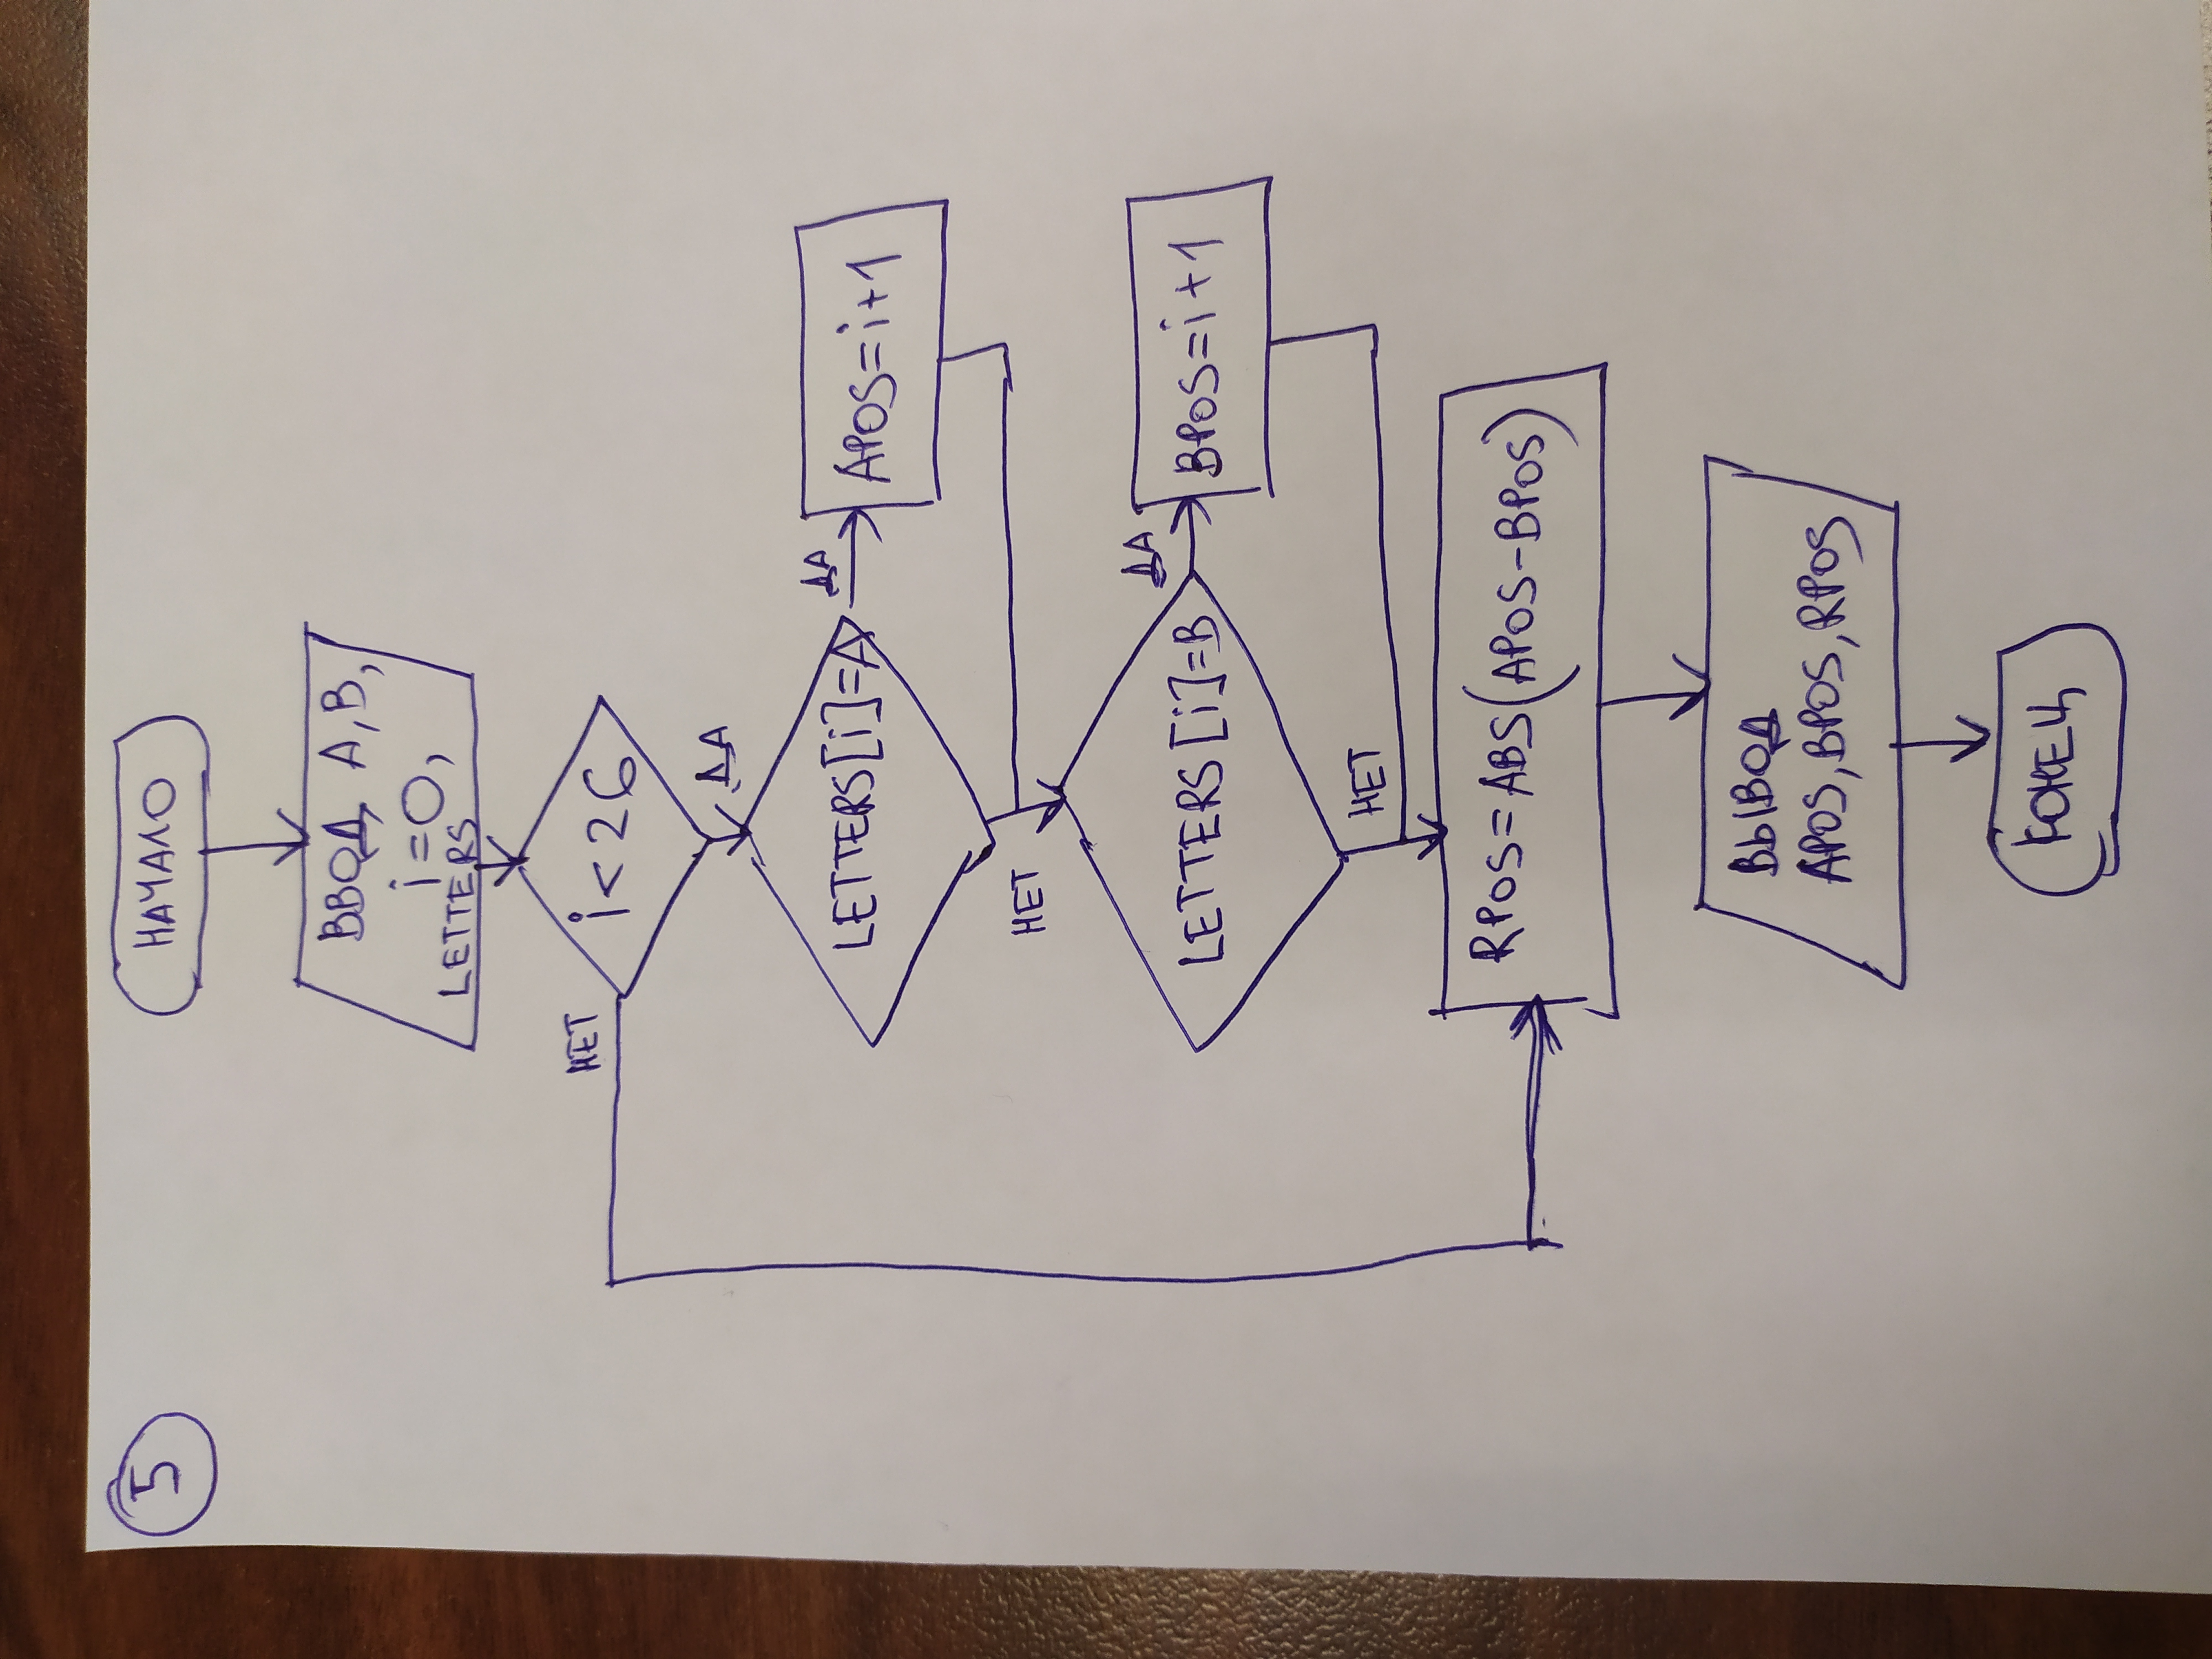 5
НАЧАЛО
ВВОД A, B,
i=0,
LETTERS
i<26
НЕТ
ДА
LETTERS[i]=A
ДА
APOS=i+1
НЕТ
LETTERS[i]=B
ДА
BPOS=i+1
НЕТ
RPOS=ABS(APOS-BPOS)
ВЫВОД
APOS, BPOS, RPOS
КОНЕЦ